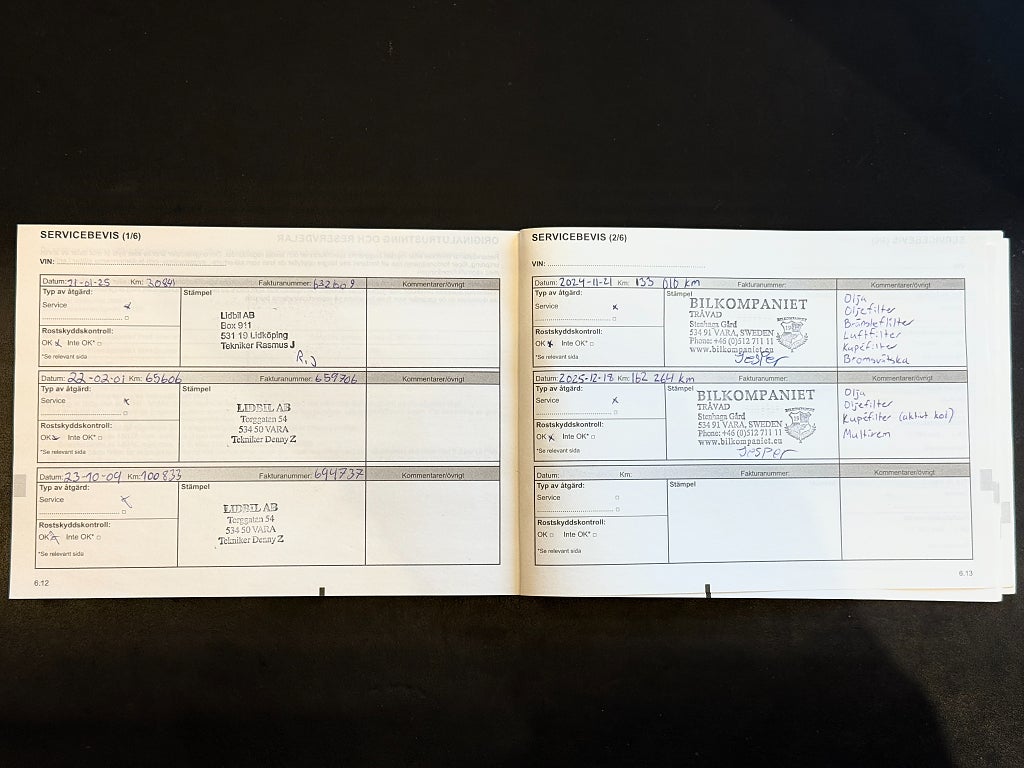 SERVICEBEVIS (1/6)
VIN:
Datum: 21-01-25 Km: 30841 Fakturanummer: 632609 Kommentarer/övrigt
Typ av åtgärd: Stämpel
Service x
Rostskyddskontroll:
OK x Inte OK*
*Se relevant sida
Lidbil AB
Box 911
531 19 Lidköping
Tekniker Rasmus J
R.J
Datum: 22-02-01 Km: 65606 Fakturanummer: 659706 Kommentarer/övrigt
Typ av åtgärd: Stämpel
Service x
Rostskyddskontroll:
OK x Inte OK*
*Se relevant sida
LIDBIL AB
Torggatan 54
534 50 VARA
Tekniker Denny Z
Datum: 23-10-09 Km: 100833 Fakturanummer: 694737 Kommentarer/övrigt
Typ av åtgärd: Stämpel
Service x
Rostskyddskontroll:
OK x Inte OK*
*Se relevant sida
LIDBIL AB
Torggatan 54
534 50 VARA
Tekniker Denny Z
6.12
SERVICEBEVIS (2/6)
VIN:
Datum: 2024-11-21 Km: 133 010 km Fakturanummer: Kommentarer/övrigt
Typ av åtgärd: Stämpel
Service x
Rostskyddskontroll:
OK x Inte OK*
*Se relevant sida
BILKOMPANIET
TRÅVAD
Stenhaga Gård
534 91 VARA, SWEDEN
Phone: +46 (0)512 711 11
www.bilkompaniet.eu
Jesper
Olja
Oljefilter
Bränslefilter
Luftfilter
Kupéfilter
Bromsvätska
Datum: 2025-12-18 Km: 162 264 km Fakturanummer: Kommentarer/övrigt
Typ av åtgärd: Stämpel
Service x
Rostskyddskontroll:
OK x Inte OK*
*Se relevant sida
BILKOMPANIET
TRÅVAD
Stenhaga Gård
534 91 VARA, SWEDEN
Phone: +46 (0)512 711 11
www.bilkompaniet.eu
Jesper
Olja
Oljefilter
Kupéfilter (aktivt kol)
Multirem
Datum: Km: Fakturanummer: Kommentarer/övrigt
Typ av åtgärd: Stämpel
Service
Rostskyddskontroll:
OK Inte OK*
*Se relevant sida
6.13